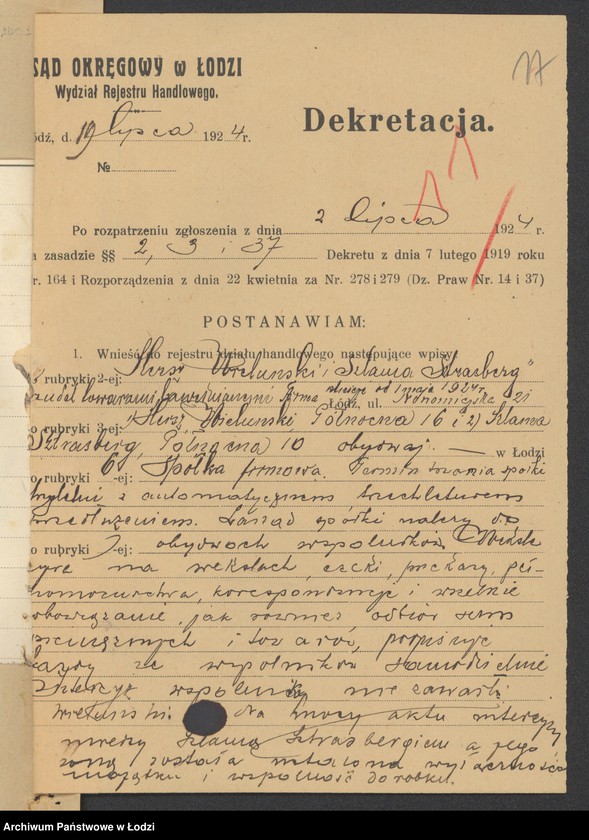 SĄD OKRĘGOWY w ŁODZI
Wydział Rejestru Handlowego.
ódź, d. 19 lipca 1924 r.
№
Dekretacja.
Po rozpatrzeniu zgłoszenia z dnia 2 lipca 1924 r.
a zasadzie §§ 2, 3 i 37 Dekretu z dnia 7 lutego 1919 roku
r. 164 i Rozporządzenia z dnia 22 kwietnia za Nr. 278 i 279 (Dz. Praw Nr. 14 i 37)
POSTANAWIAM:
1. Wnieść do rejestru działu handlowego następujące wpisy:
rubryki 2-ej: Hersz Wieluński i Szlama Strasberg"
towarami Firma istnieje od 1 maja 1924 r.
Łódź, ul. Nowomiejska 21
o rubryki 3-ej: Hersz Wieluński, Północna 16 i 2) Szlama
Strasberg, Północna 10 obydwaj — w Łodzi
o rubryki 6-ej: Spółka firmowa. Termin trwania spółki
z automatycznem trzechletniem
przedłużeniem. Zarząd spółki należy do
o rubryki -ej: obydwóch wspólników
na wekslach, czeki, przekazy, peł-
nomocnictwa, korespondencje i wszelkie
zobowiązanie, jak również odbiór sum
pieniężnych i towarów, podpisuje
każdy ze wspólników samodzielnie
wspólnik nie zawarł
Wieluński na mocy aktu intercyzy
między Szlamą Strasbergiem a jego
żoną została ustalona wyłączność
majątku i wspólność dorobku.
Archiwum Państwowe w Łodzi